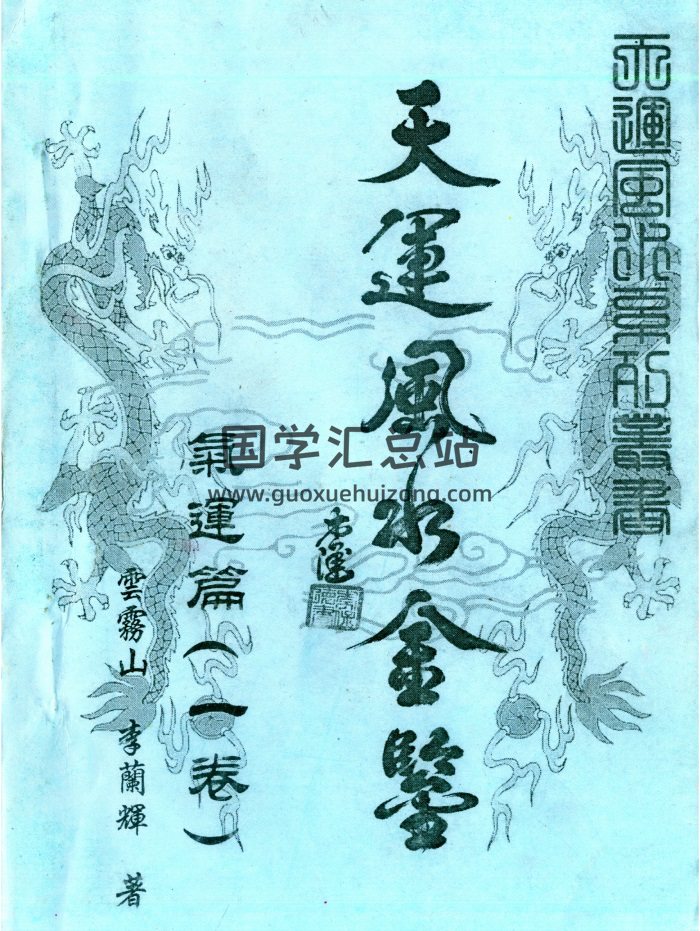 天運風水系列叢書
天運風水金鑒
氣運篇(一卷)
雲霧山 李蘭輝 著
国学汇总站
www.guoxuehuizong.com